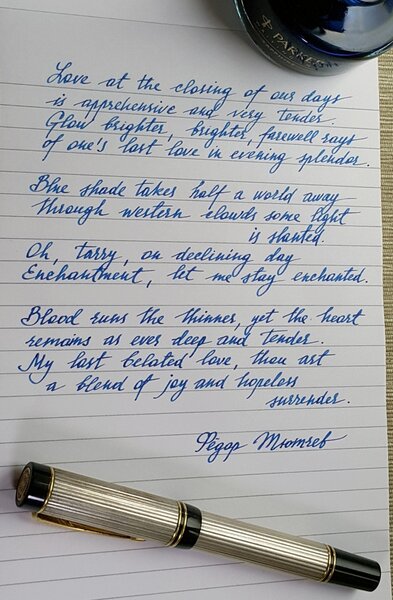 PARKER
Love at the closing of our days
is apprehensive and very tender.
Glow brighter, brighter, farewell rays
of one's last love in evening splendor.
Blue shade takes half a world away
through western clouds some light
is slanted.
Oh, tarry, on declining day
Enchantment, let me stay enchanted.
Blood runs the thinner, yet the heart
remains as ever deep and tender.
My last belated love, thou art
a blend of joy and hopeless
surrender.
Фёдор Тютчев